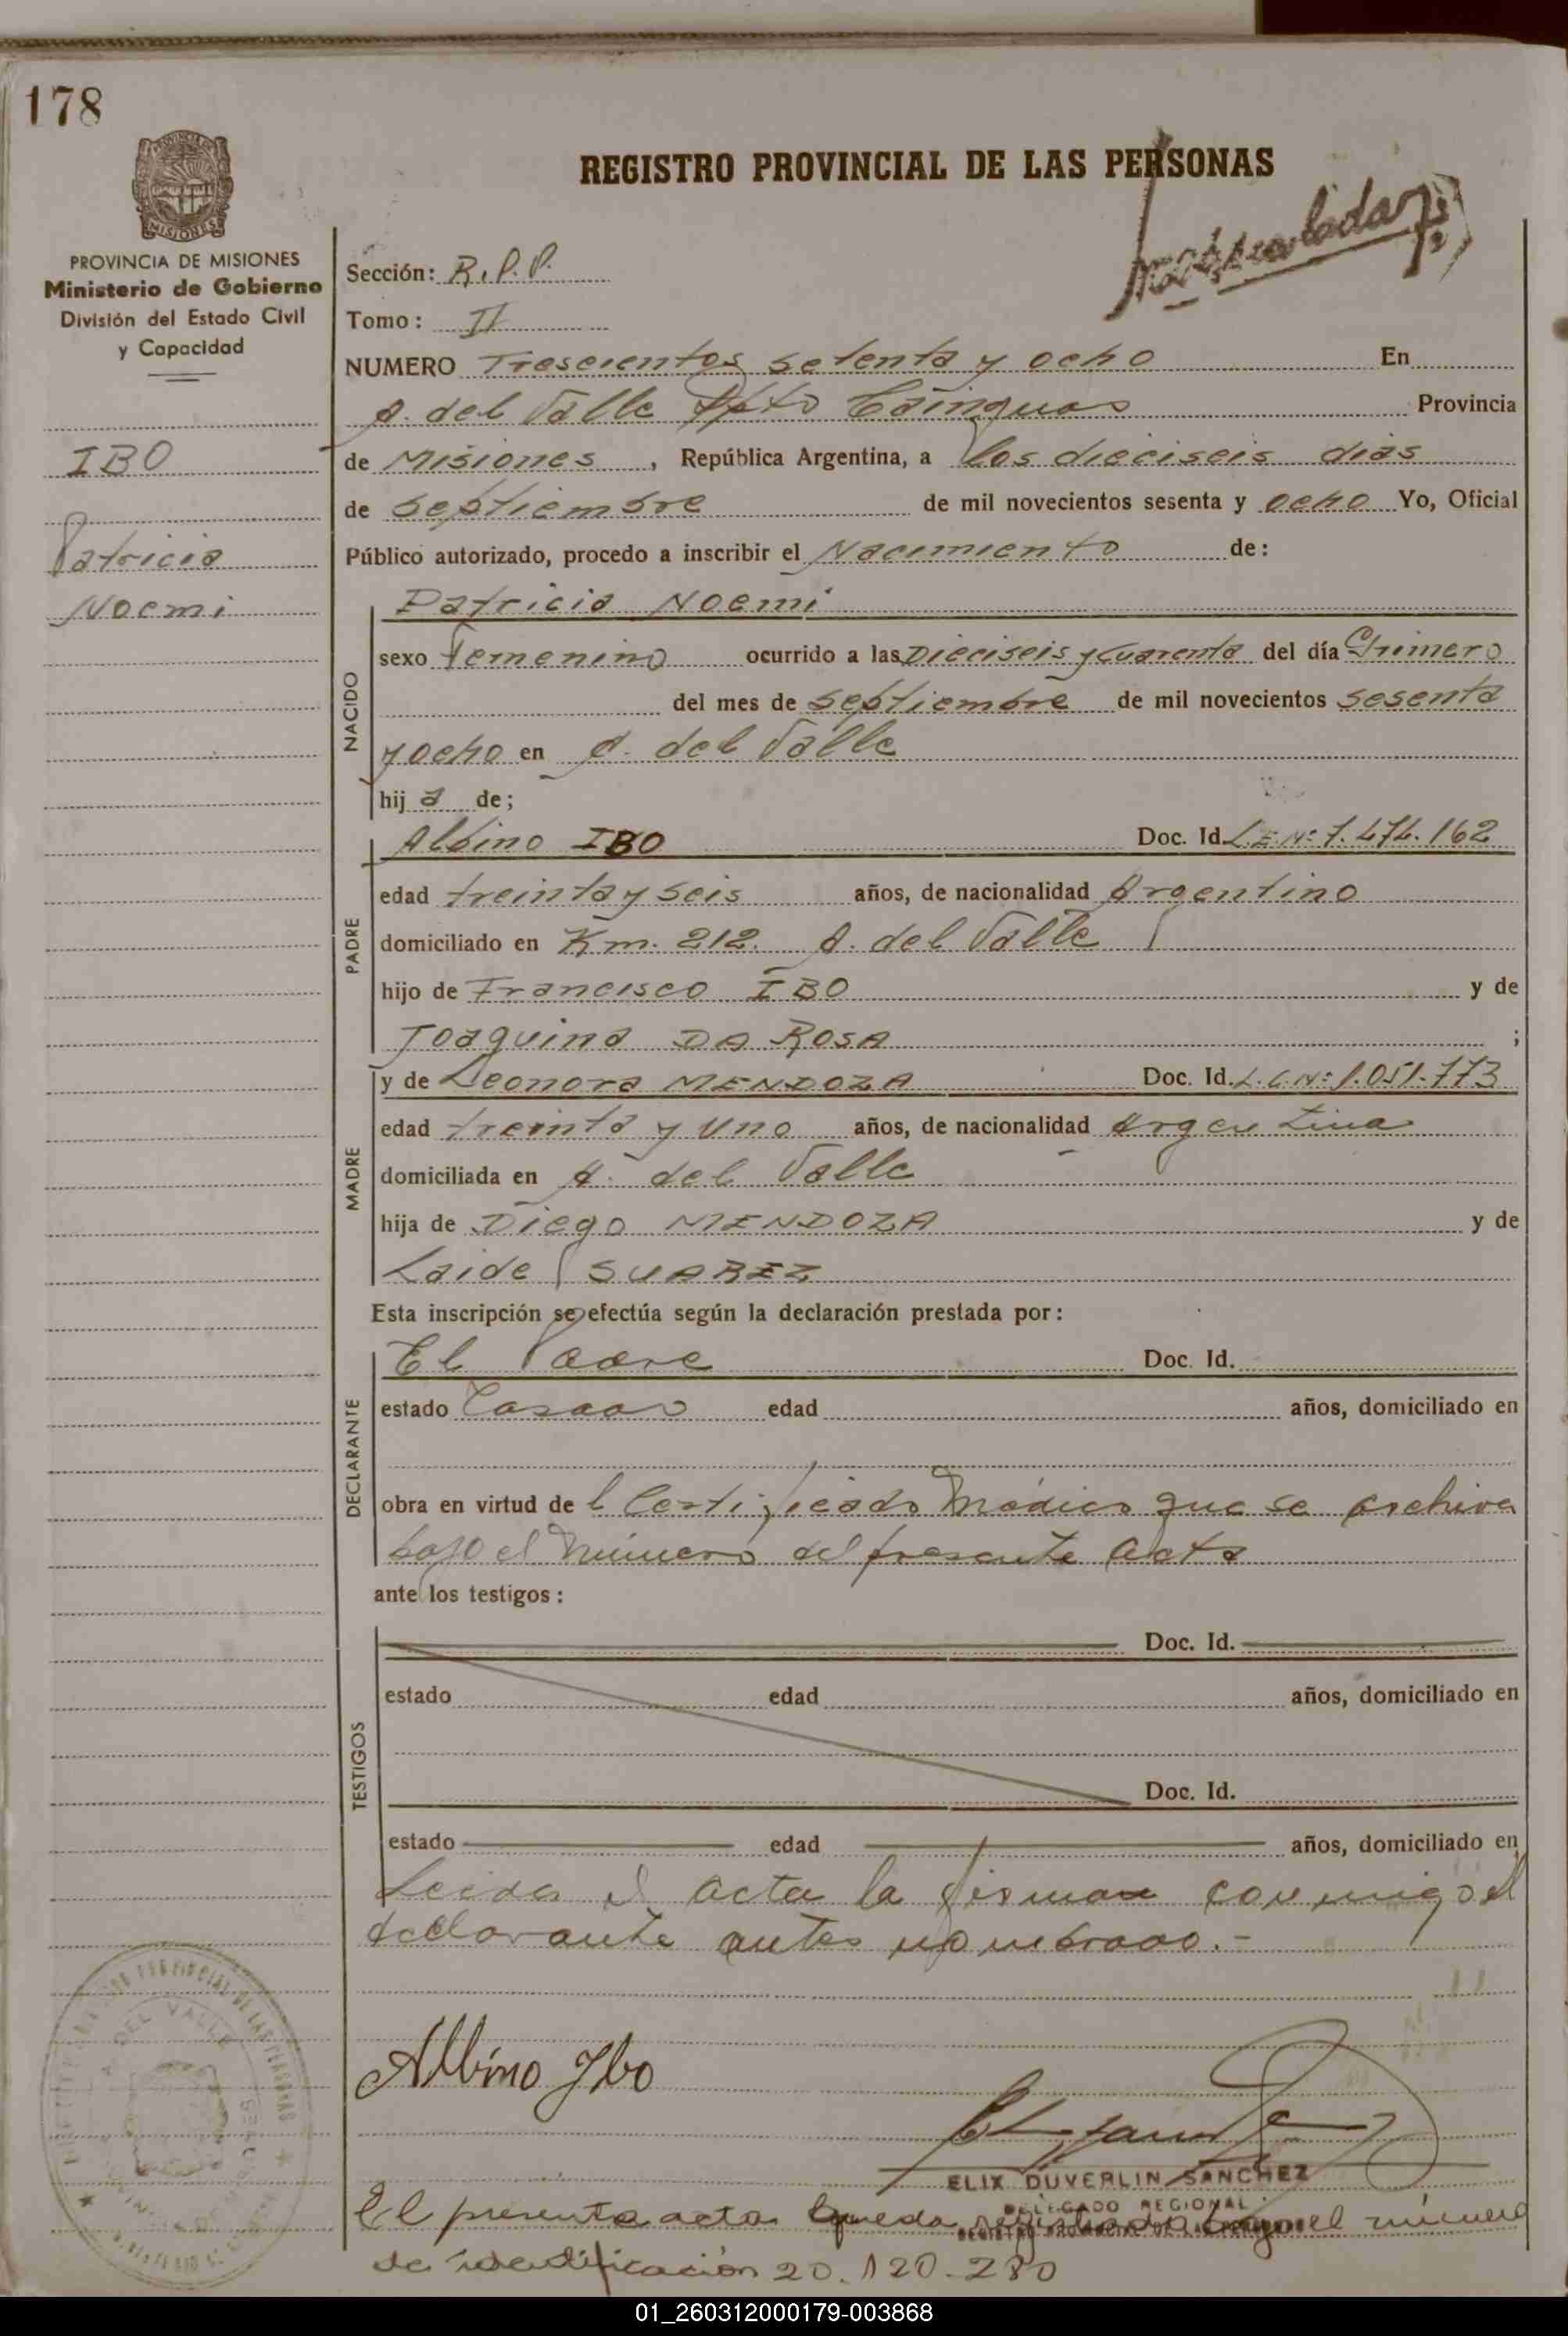 178
REGISTRO PROVINCIAL DE LAS PERSONAS
MISIONES
PROVINCIA DE MISIONES
Ministerio de Gobierno
División del Estado Civil
y Capacidad
Sección: R.P.P.
Tomo: II
NUMERO Trescientos setenta y ocho En
A. del Valle Dpto Cainguas Provincia
IBO
de Misiones, República Argentina, a los dieciseis dias
de septiembre de mil novecientos sesenta y ocho Yo, Oficial
Patricia
Público autorizado, procedo a inscribir el Nacimiento de:
Noemi
Patricia Noemi
NACIDO
sexo Femenino ocurrido a las Dieciseis y cuarenta del día Primero
del mes de septiembre de mil novecientos sesenta
y ocho en A. del Valle
hija de;
PADRE
Albino IBO Doc. Id. L.E.Nº 7.474.162
edad treinta y seis años, de nacionalidad Argentino
domiciliado en Km. 212. A. del Valle
hijo de Francisco IBO y de
Joaquina DA ROSA ;
MADRE
y de Leonora MENDOZA Doc. Id. L.C.Nº 1.051.773
edad treinta y uno años, de nacionalidad Argentina
domiciliada en A. del Valle
hija de Diego MENDOZA y de
Laide SUAREZ
Esta inscripción se efectúa según la declaración prestada por:
DECLARANTE
El Padre Doc. Id.
estado Casado edad años, domiciliado en
obra en virtud de l Certificado Médico que se archiva
bajo el número del presente Acta
ante los testigos:
TESTIGOS
Doc. Id.
estado edad años, domiciliado en
Doc. Id.
estado edad años, domiciliado en
Leida el acta la firman conmigo el
declarante antes nombrado.-
A. DEL VALLE
Albino Ibo
ELIX DUVERLIN SANCHEZ
DELEGADO REGIONAL
El presente acta queda registrada bajo el número
de identificación 20.120.280
01_260312000179-003868